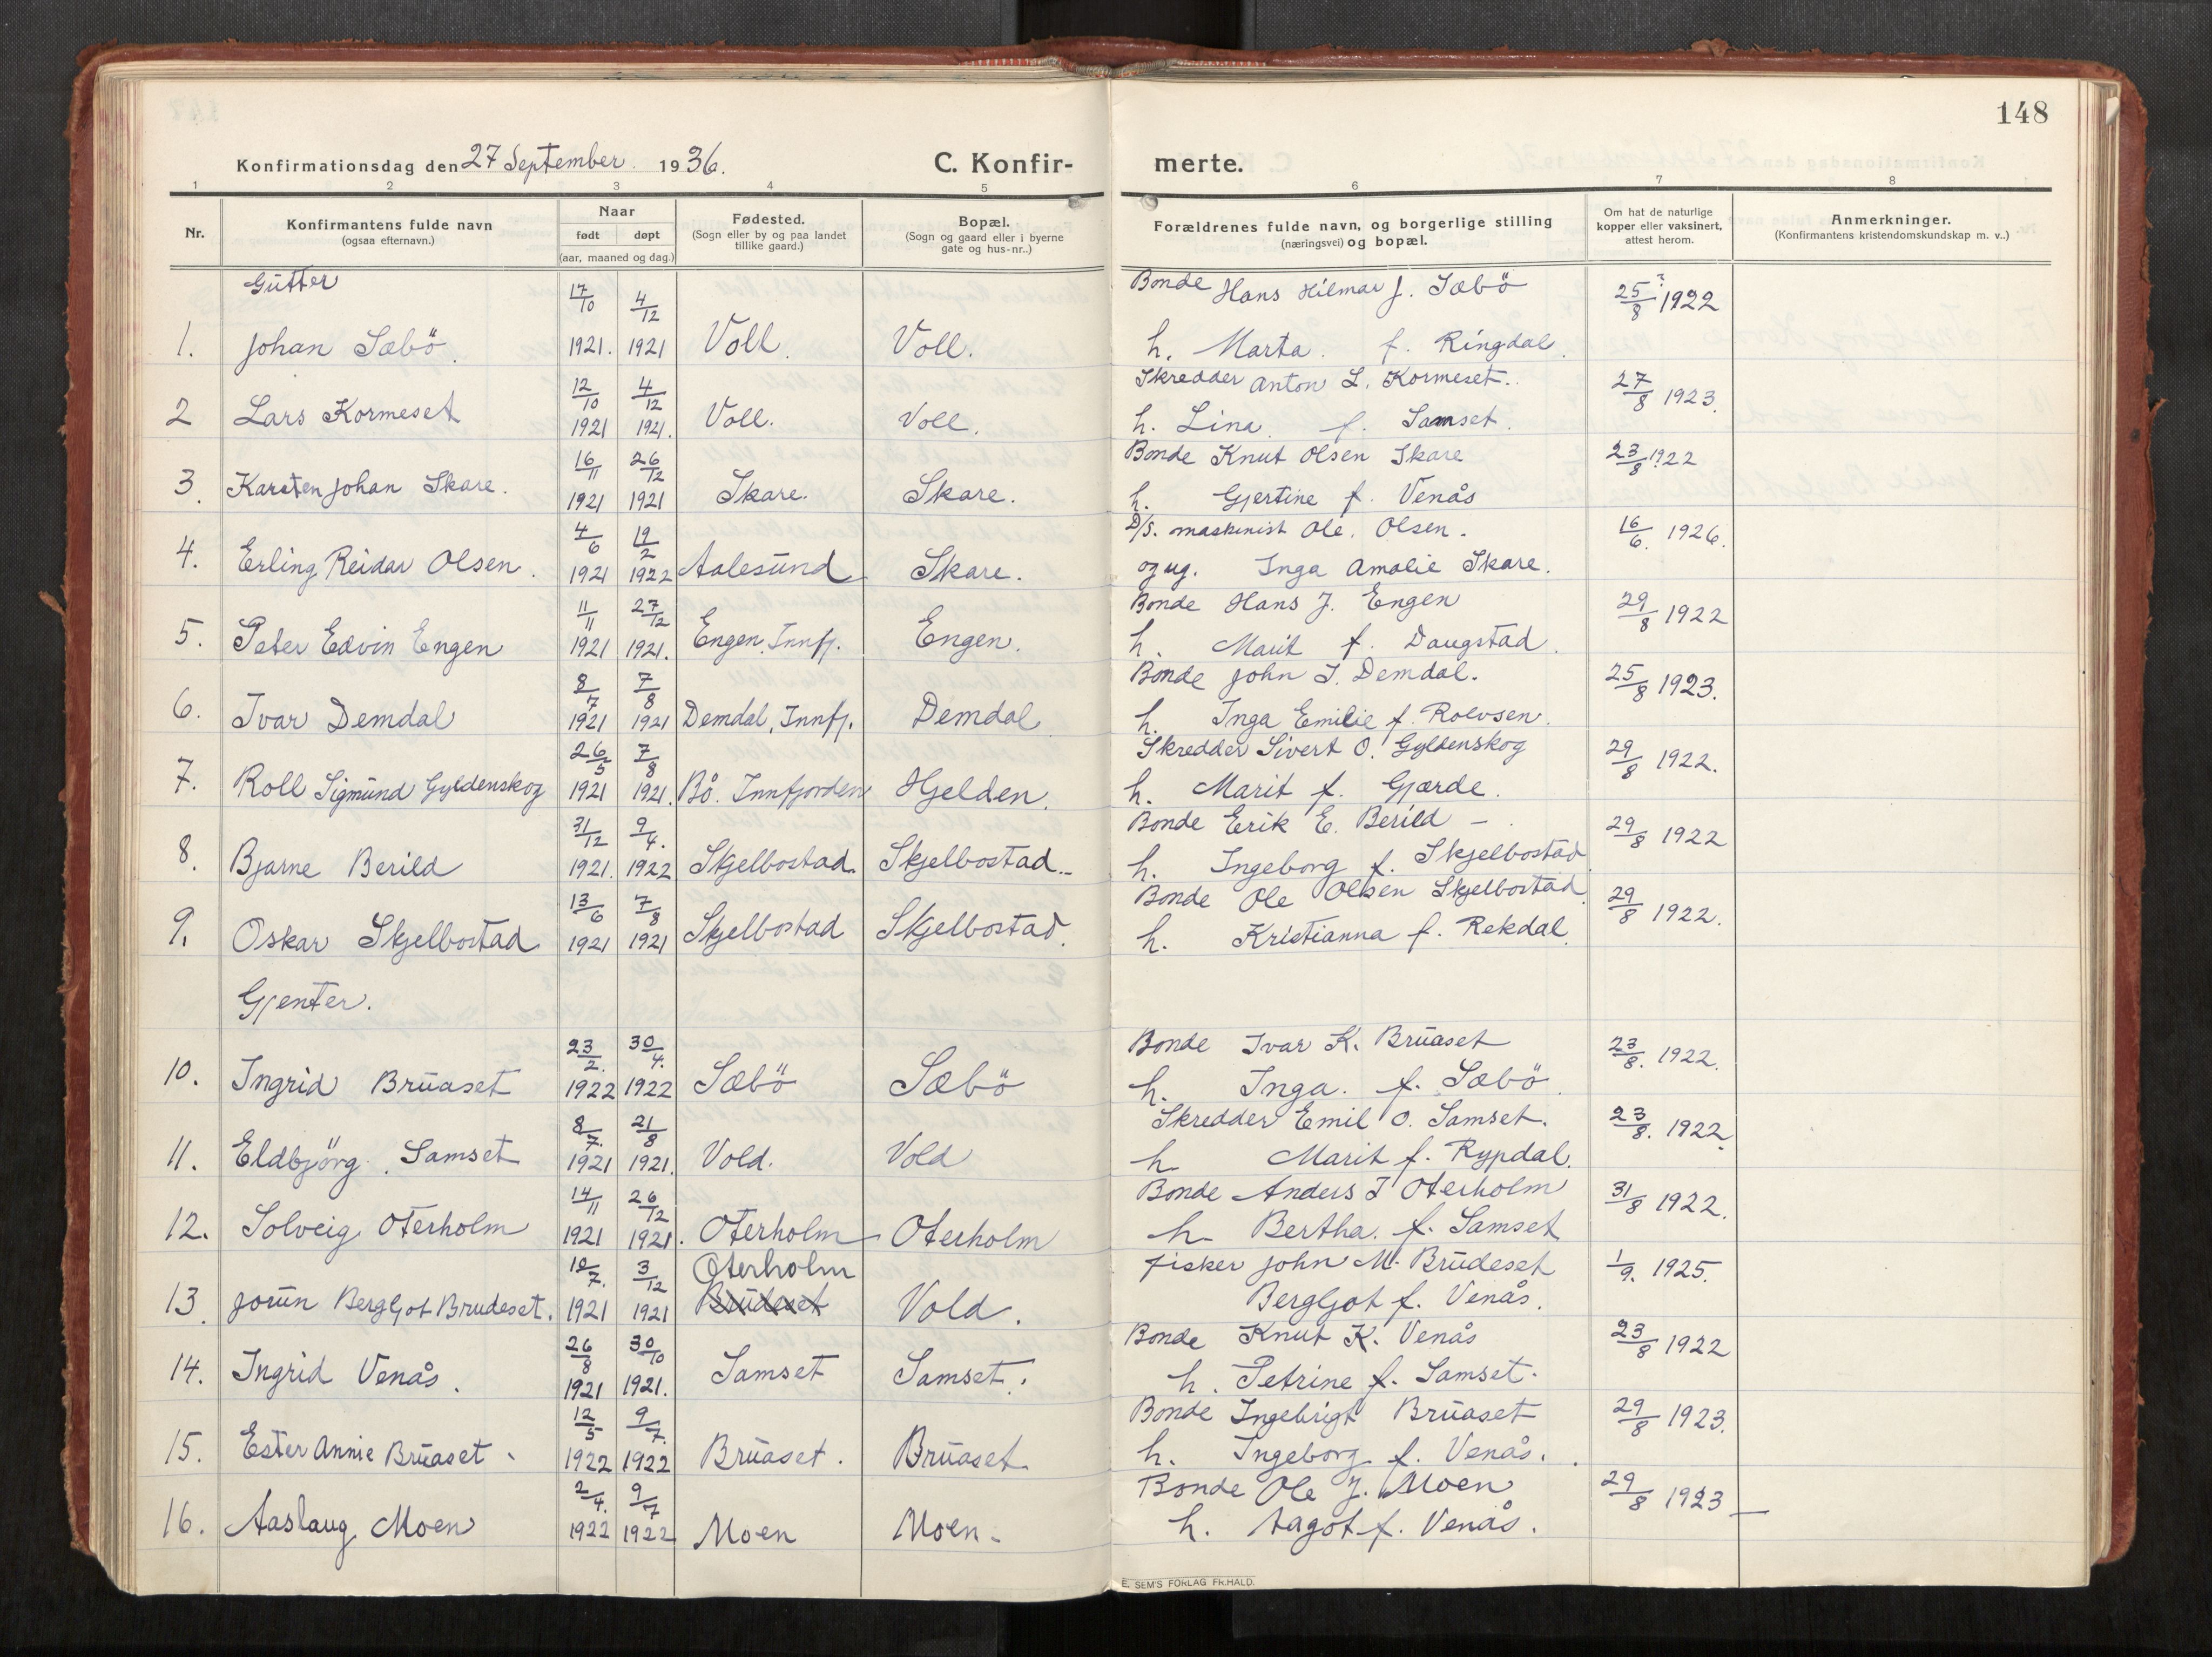 148
Konfirmationsdag den 27 September. 1936. C. Konfir- merte.
1 2 3 4 5 6 7 8
Nr. Konfirmantens fulde navn (ogsaa efternavn.) Naar født døpt (aar, maaned og dag.) Fødested. (Sogn eller by og paa landet tillike gaard.) Bopæl. (Sogn og gaard eller i byerne gate og hus-nr..) Forældrenes fulde navn, og borgerlige stilling (næringsvei) og bopæl. Om hat de naturlige kopper eller vaksinert, attest herom. Anmerkninger. (Konfirmantens kristendomskundskap m. v..)
Gutter 17/10 4/12 Bonde Hans Hilmar J. Sæbö 25/8 ? 1922
1. Johan Sæbö. 1921. 1921 Voll. Voll. h. Marta. f. Ringdal.
12/10 4/12 Skredder Anton L. Kormeset. 27/8 1923.
2 Lars Kormeset 1921 1921. Voll. Voll. h. Lina f. Samset.
16/11 26/12 Bonde Knut Olsen Skare 23/8 1922
3. Karsten Johan Skare. 1921 1921 Skare. Skare. h. Gjertine f. Venås
4/6 19/2 D/s. maskinist Ole. Olsen. 16/6. 1926.
4. Erling Reidar Olsen. 1921 1922 Aalesund Skare. og ug. Inga Amalie Skare.
11/11 27/12 Bonde Hans J. Engen 29/8 1922
5. Peter Edvin Engen 1921 1921. Engen, Innfj. Engen. h. Marit f. Daugstad.
8/7 7/8 Bonde John I. Demdal. 25/8 1923.
6. Ivar Demdal 1921 1921 Demdal, Innfj. Demdal h. Inga Emilie f. Rolvsen.
26/5 7/8 Skredder Sivert O. Gyldenskog 29/8 1922.
7. Roll Sigmund Gyldenskog 1921 1921. Bö. Innfjorden Hjelden. h. Marit f. Gjærde.
31/12 9/4. Bonde Erik E. Berild - 29/8 1922
8. Bjarne Berild 1921. 1922 Skjelbostad. Skjelbostad.- h. Ingeborg f. Skjelbostad
13/6 7/8 Bonde Ole Olsen Skjelbostad. 29/8 1922.
9. Oskar Skjelbostad 1921 1921 Skjelbostad Skjelbostad. h. Kristianna f. Rekdal.
Gjenter.
23/2. 30/4. Bonde Ivar K. Bruaset 23/8. 1922.
10. Ingrid Bruaset 1922 1922 Sæbö Sæbö h. Inga. f. Sæbö
8/7. 21/8 Skredder Emil O. Samset. 23/8. 1922.
11. Eldbjörg Samset 1921 1921. Vold. Vold h. Marit f. Rypdal.
14/11 26/12 Bonde Anders I Oterholm 31/8 1922.
12. Solveig Oterholm 1921 1921. Oterholm Oterholm h. Bertha. f. Samset
7. 3/12 Oterholm fisker John M. Brudeset 1/9. 1925.
13. Jorun Bergljot Brudeset. 1921 1921 Brudeset Vold. Bergljot f. Venås.
26/8 30/10 Bonde Knut K. Venås 23/8 1922
14. Ingrid Venås. 1921 1921. Samset Samset. h. Petrine f. Samset.
12/5 9/7. Bonde Ingebrigt Bruaset 29/8 1923.
15. Ester Annie Bruaset. 1922 1922 Bruaset. Bruaset. h. Ingeborg f. Venås.
2/4. 9/7 Bonde Ole J. Moen 29/8 1923 —
16. Aaslaug Moen 1922 1922 Moen Moen- h. Aagot f. Venås.
E. SEM'S FORLAG FR.HALD.